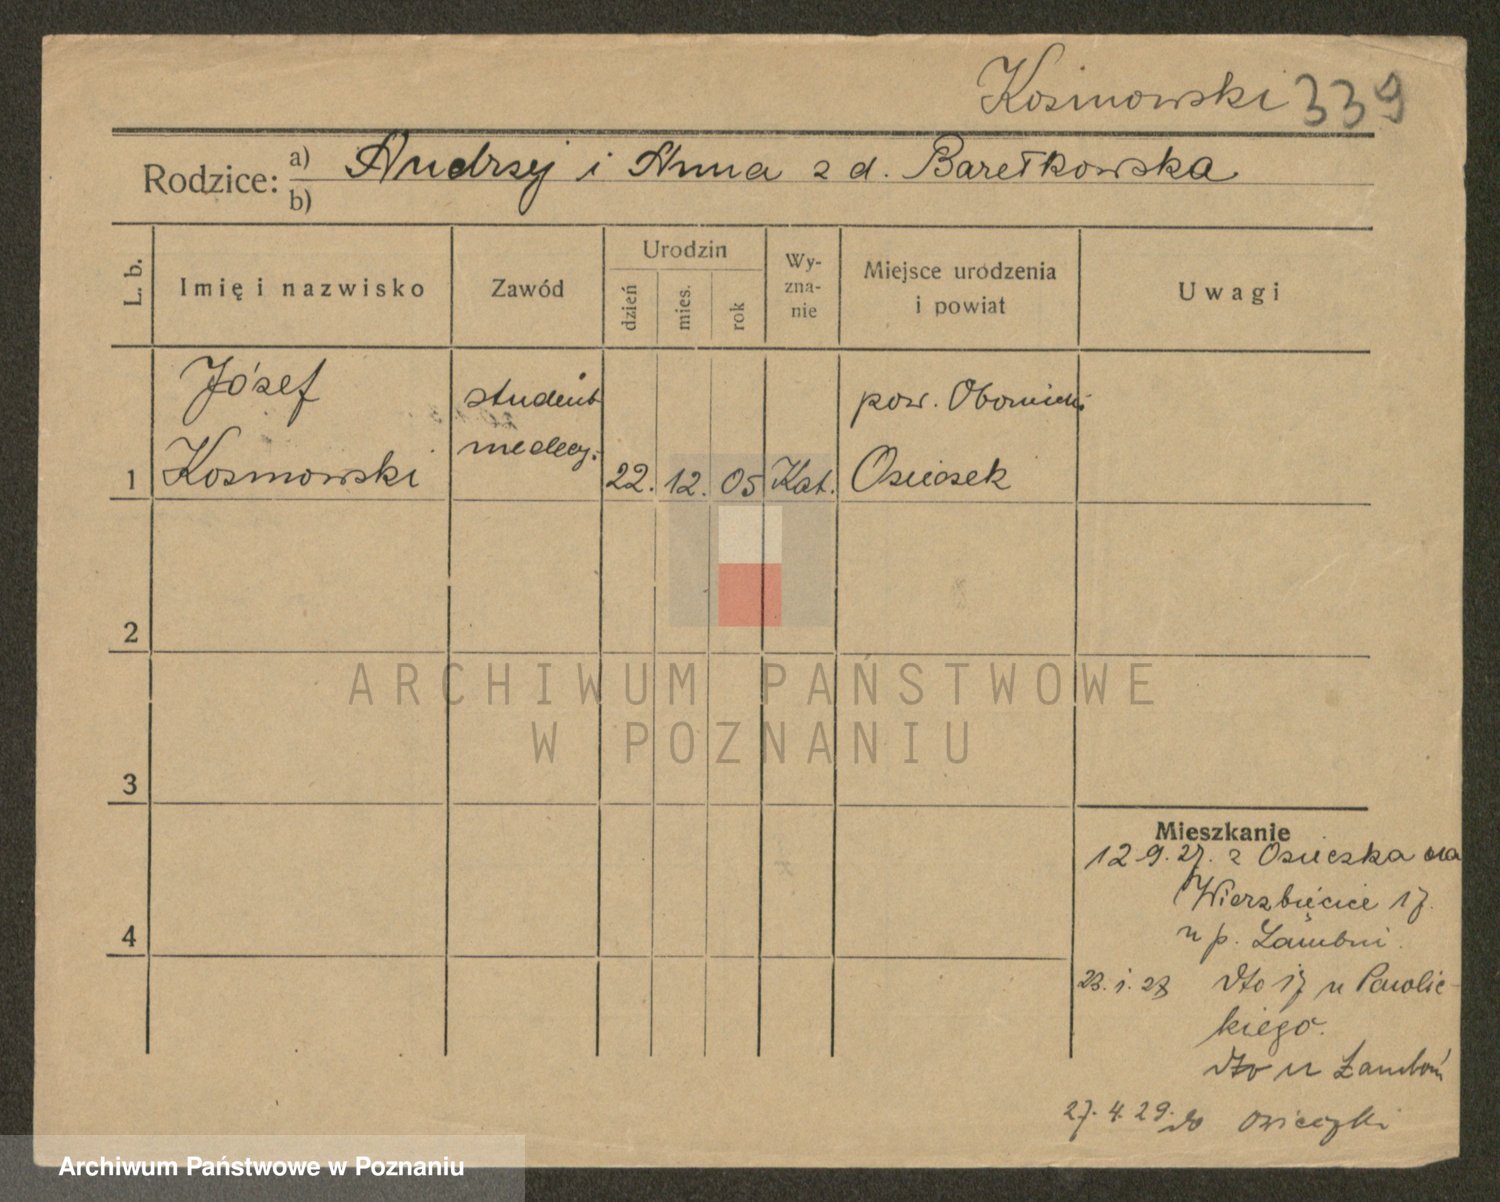 Kosmowski 339
Rodzice: a) Andrzej i Anna z d. Barełkowska
b)
L. b.
Imię i nazwisko
Zawód
Urodzin
dzień
mies.
rok
Wy-
zna-
nie
Miejsce urodzenia
i powiat
Uwagi
Józef
Kosmowski
student
medecy.
1
22. 12. 05 Kat.
pow. Obornicki
Osieczek
2
3
4
ARCHIWUM PAŃSTWOWE
W POZNANIU
Mieszkanie
12 9. 27. z Osieczka na
Wierzbięcice 17.
u p.
23. 1. 28 dto 17 u Pawlic-
kiego.
dto u
27. 4. 29. do
Archiwum Państwowe w Poznaniu